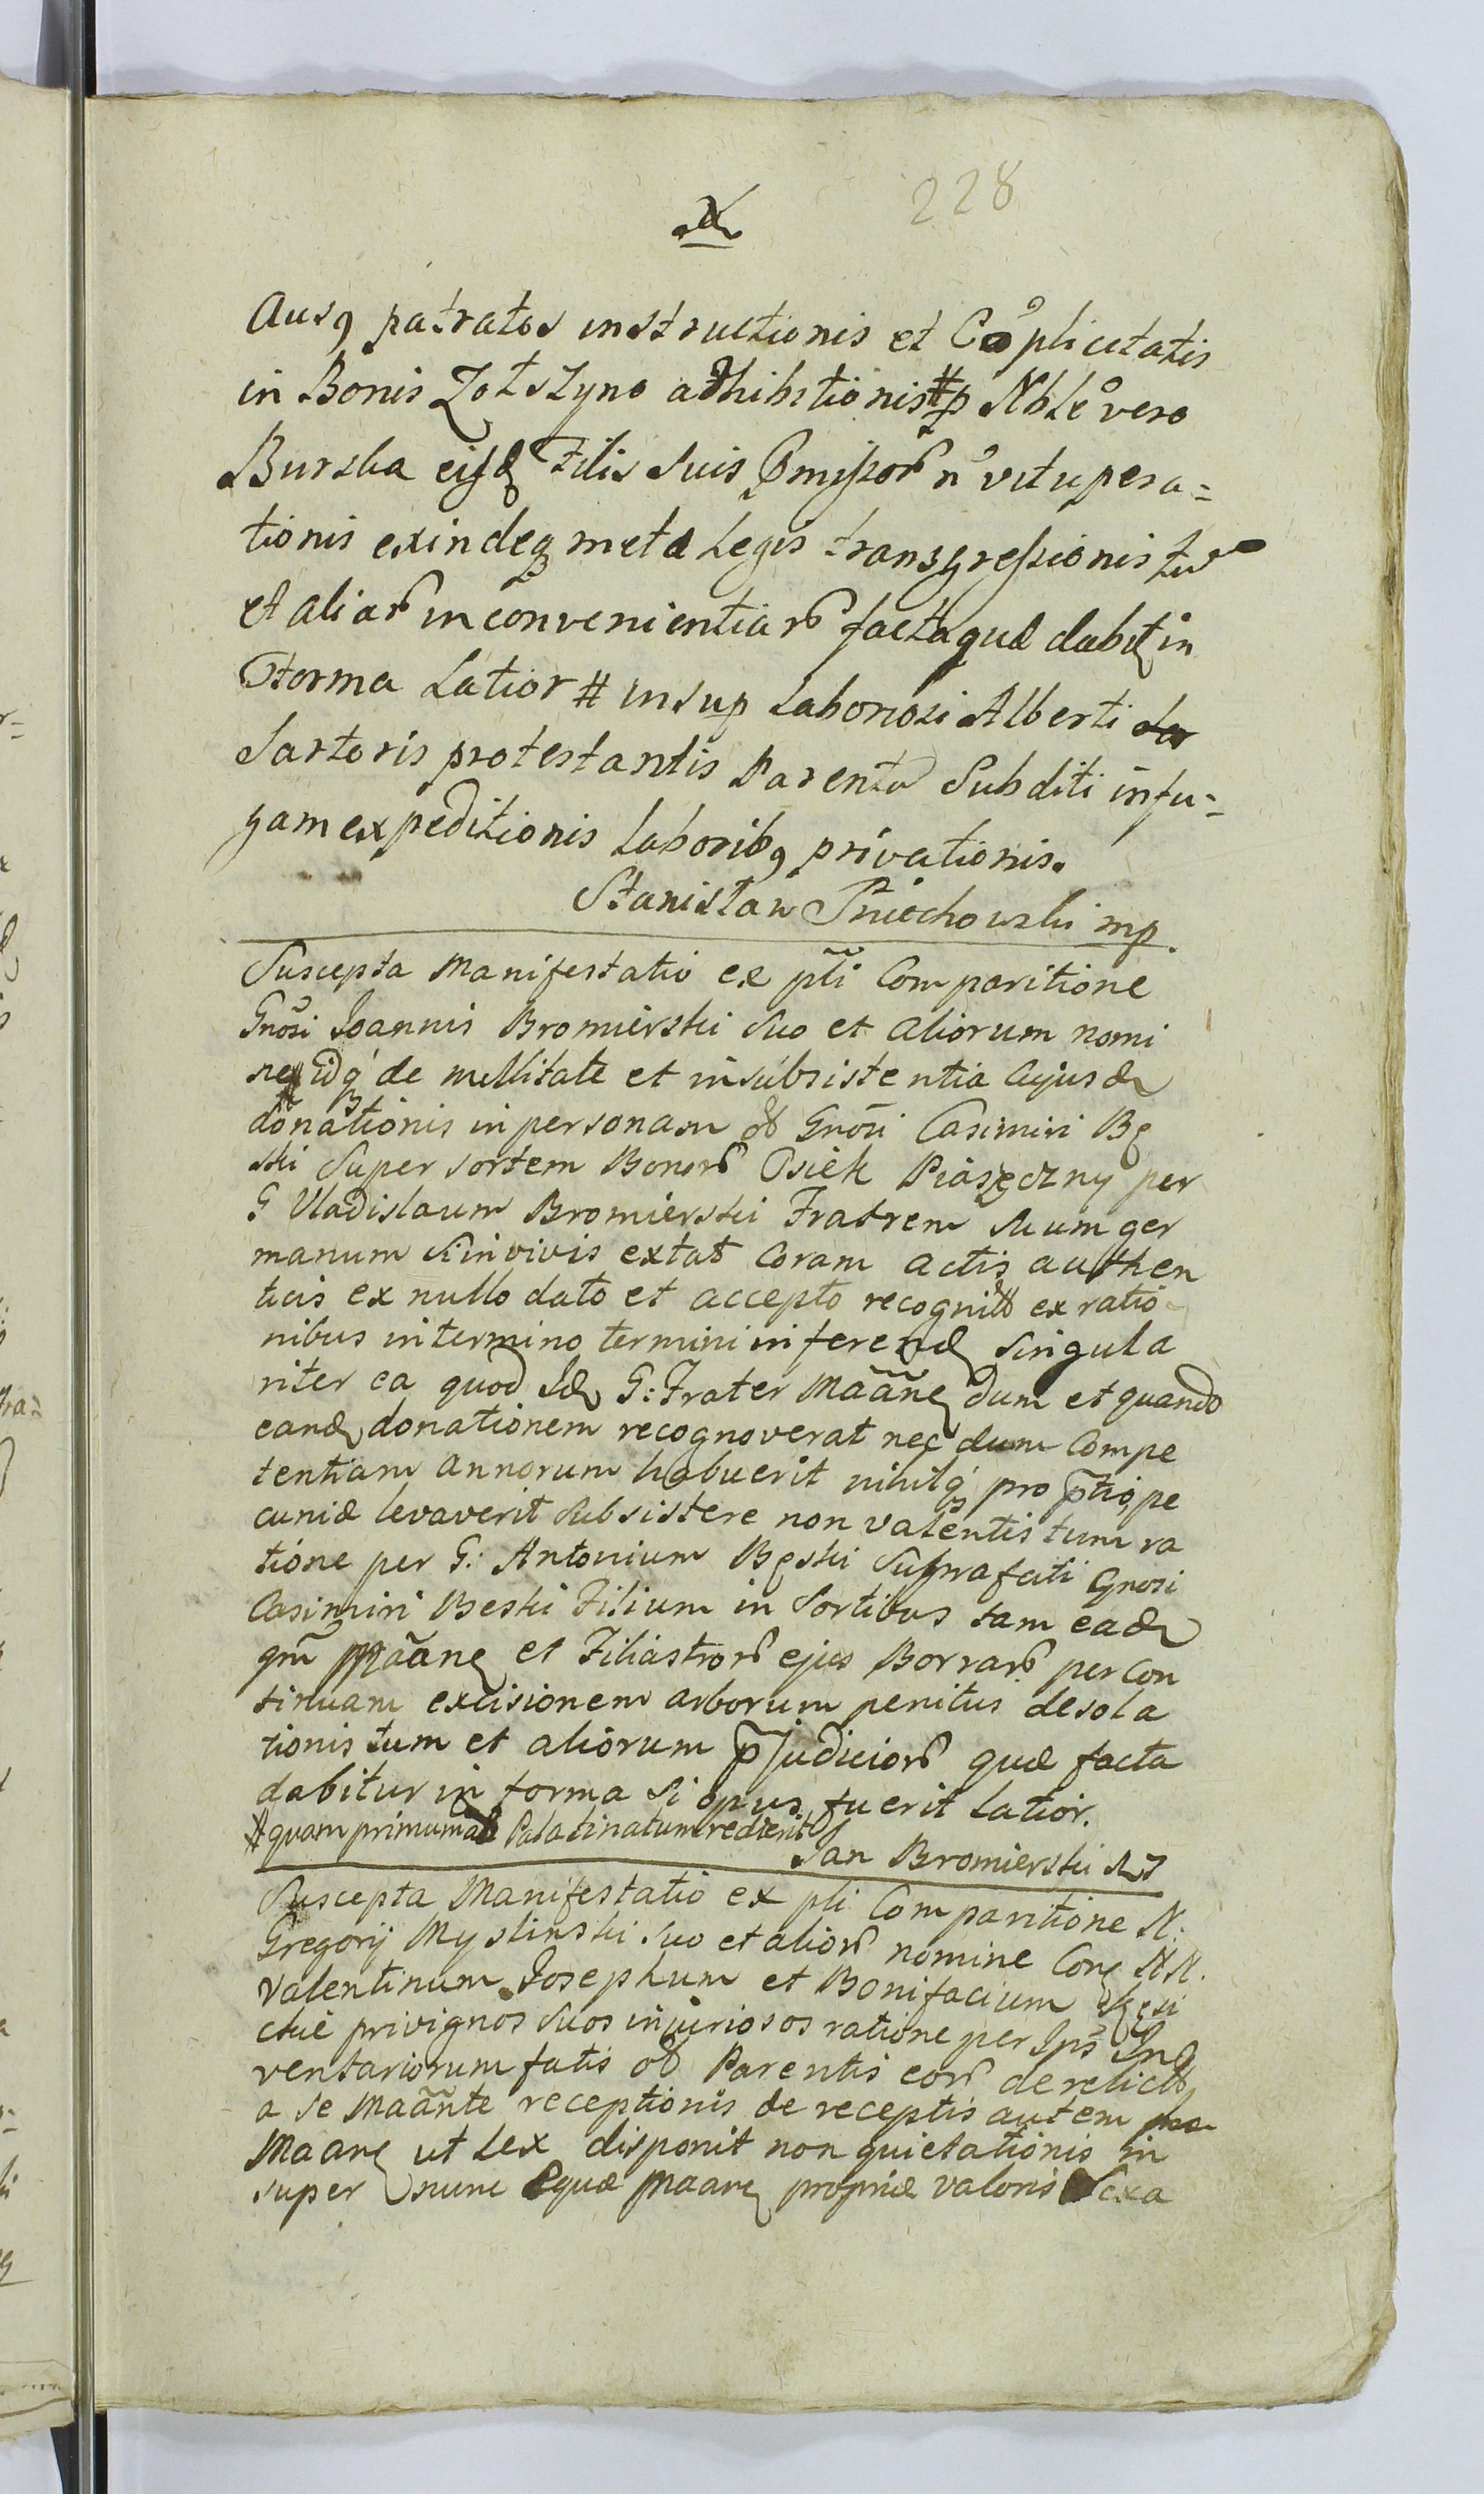 228
Ausq patratos instructionis et Coplicitatis
in Bonis Zolstyno adhibitionis # p Nble vero
Burska eisd Filis Suis Pmissor n vitupera=
tionis exindeq meta Legis transgressionis tu
et aliar inconvenientiar facta quæ dabit in
Forma Latior # insup Laboriosi Alberti
Sartoris protestantis Parenta Subditi in fu=
gam expeditionis Laborib9 privationis.
Stanisław Śniechowski mp.
Suscepta Manifestatio ex pli Comparitione
Gnosi Joannis Bromierski Suo et aliorum nomi
ne idq de nullitate et insubsistentia cujusd
donationis in personam ol Gnosi Casimiri Bę
ski Super sortem Bonor Osiek Piaseczny per
G Uladislaum Bromierski Fratrem Suum ger
manum Si in vivis extat Coram actis authen
ticis ex nullo dato et accepto recognit ex ratio-
nibus in termino termini inferend Singula
riter ea quod Id G: Frater Maane dum et quando
eand donationem recognoverat nec dum Compe
tentiam annorum habuerit nihilq pro ptio pe
cuniæ levaverit Subsistere non valentis tum ra
tione per G: Antonium Bęski Suprafati Gnosi
Casimiri Beski Filium in Sortibus tam ead
qm Maane et Filiastror ejus Borrar per Con
tinuam excisionem arborum penitus desola
tionis tum et aliorum pjudicior quæ facta
dabitur in forma Si opus fuerit Latior.
# quam primum ad Palatinatum redierit
Jan Bromierski
Suscepta Manifestatio ex pli Comparitione N:
Gregorij Myslinski Suo et alior nomine Con NN.
Valentinum Josephum et Bonifacium
ckie privignos Suos injuriosos ratione per Ips In
ventariorum fatis ol Parentis eor derelict
a Se Maante receptionis de receptis autem
Maane ut Lex disponit non quietationis in
super nunc Equæ Maane propriæ valoris Sexa